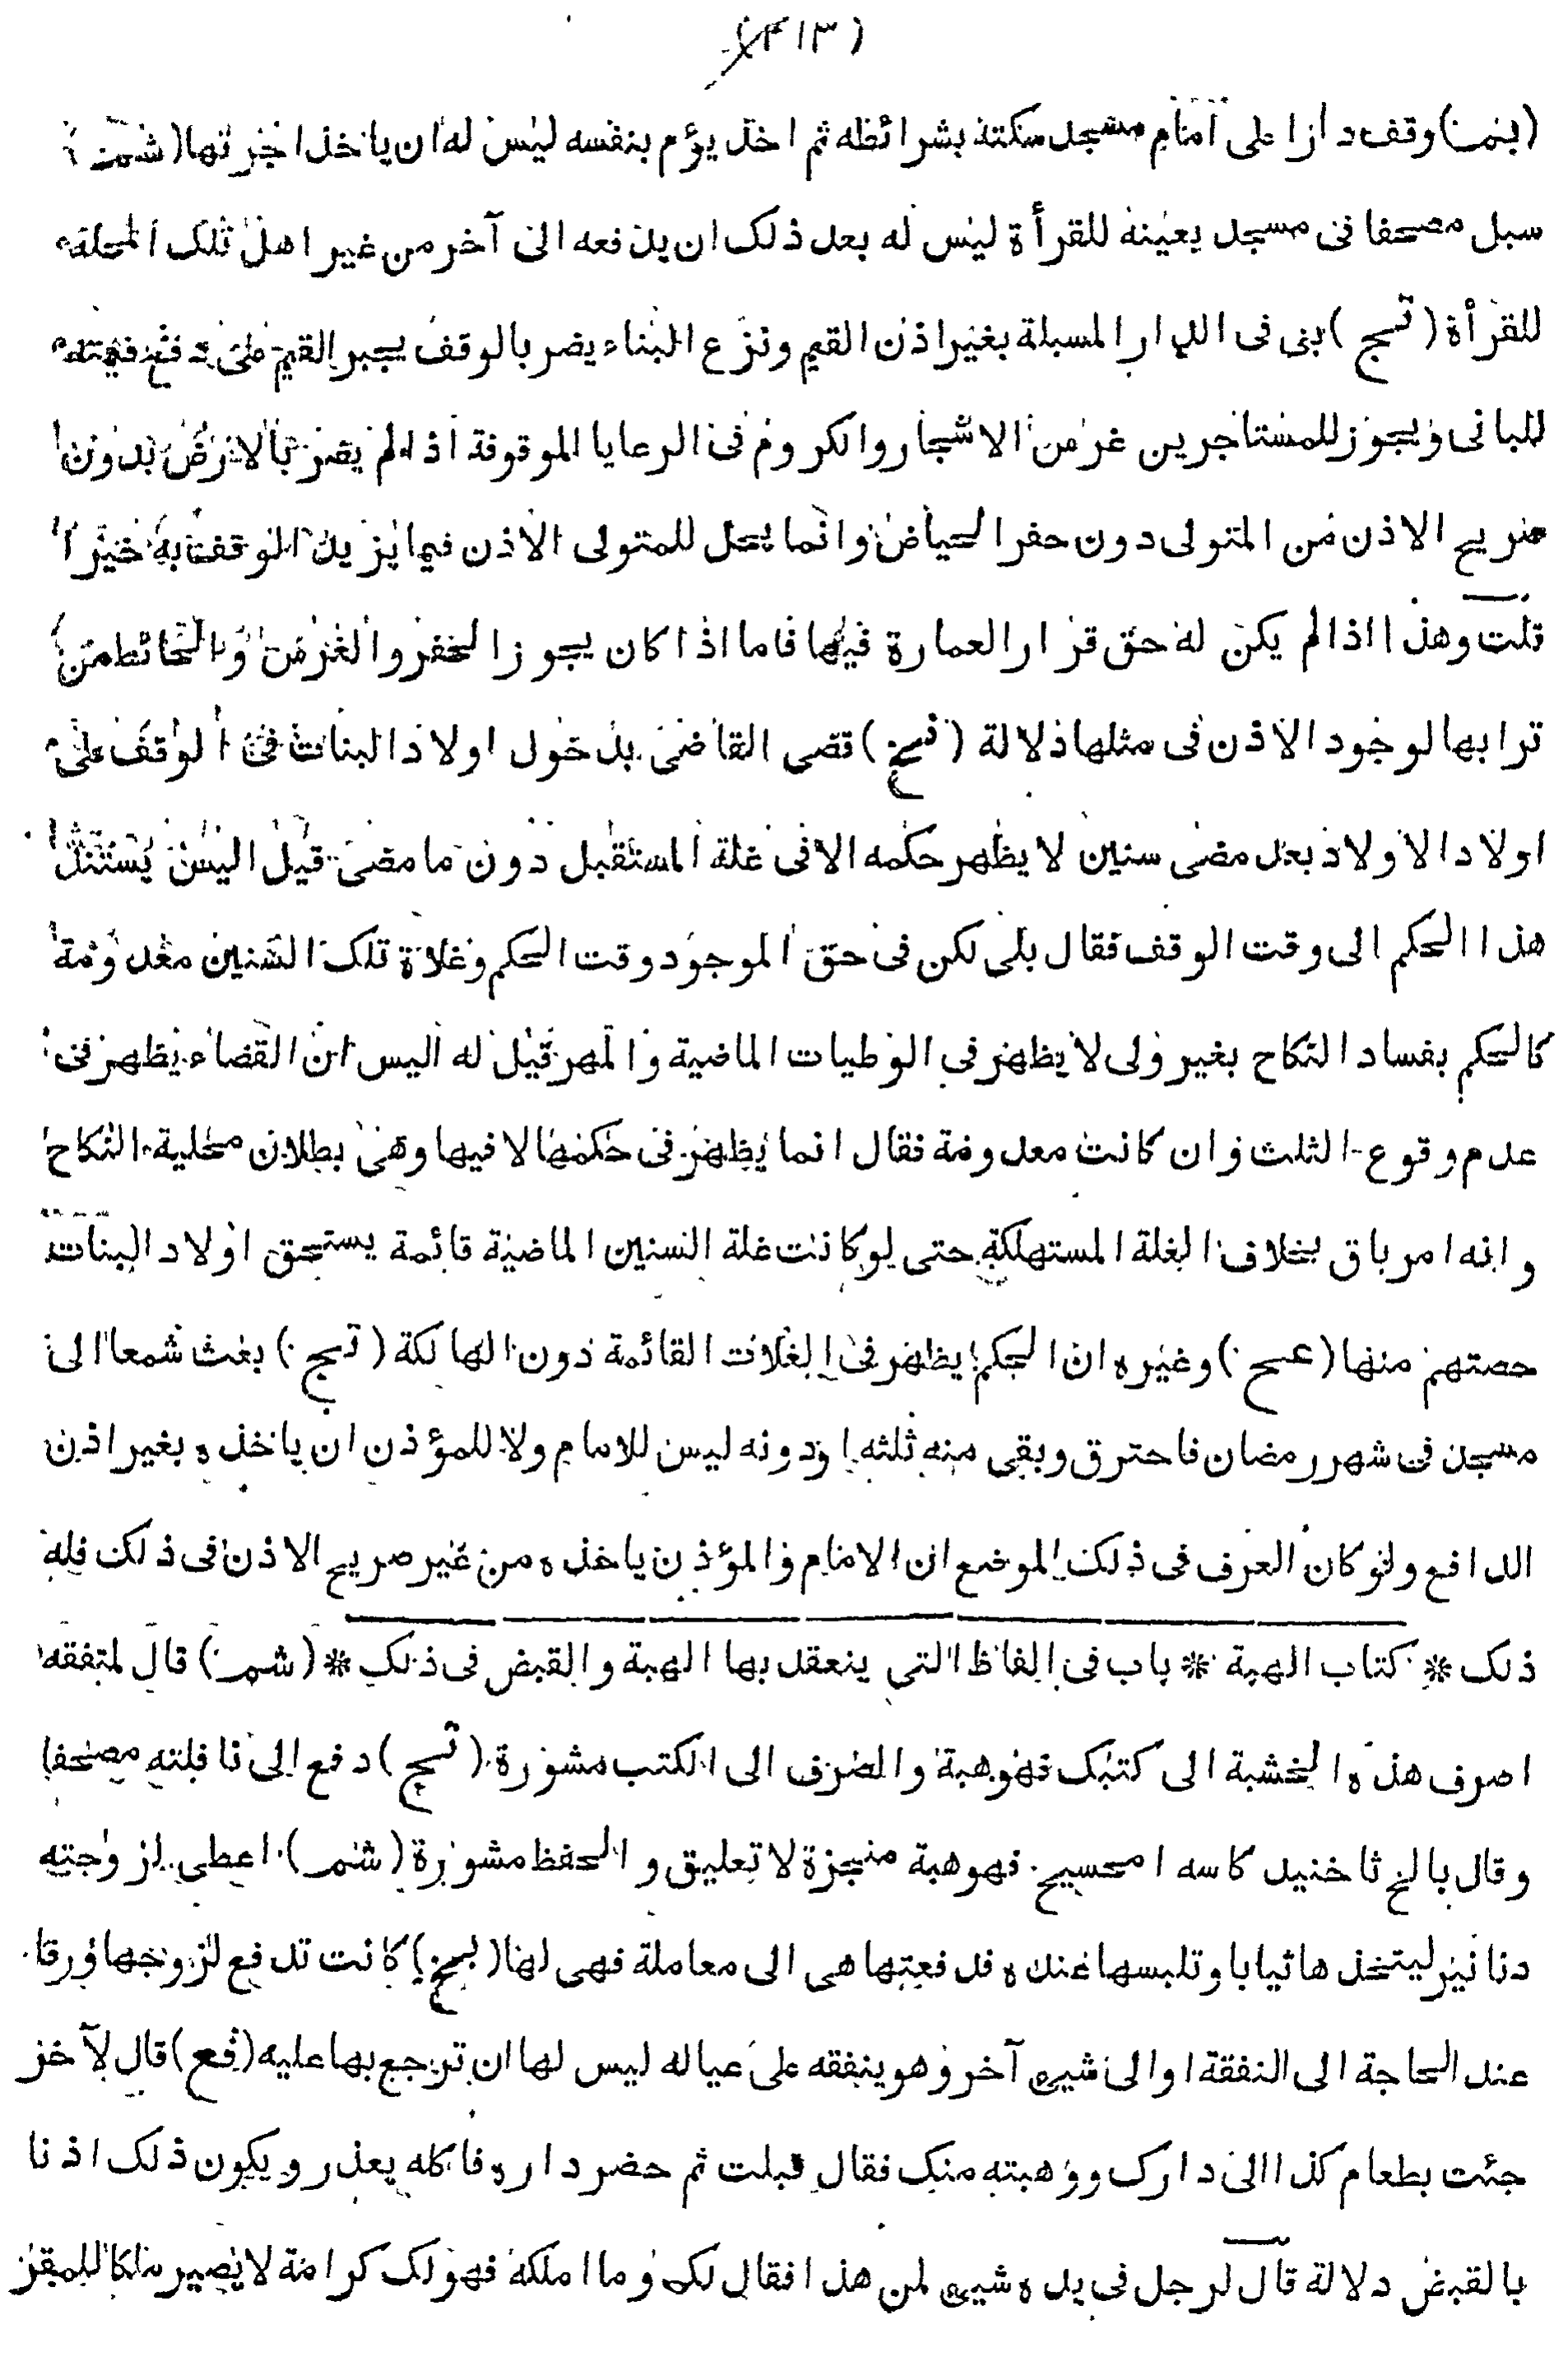 (٢١٣)
(بنمـ) وقف دارا على امام مسجد سكنه بشرائطه ثم اخذ يؤم بنفسه ليس له ان ياخذ اجرتها (شمـ)
سبل مصحفا فى مسجد بعينه للقرأة ليس له بعد ذلك ان يدفعه الى آخر من غير اهل تلك المحلة
للقرأة (تسج) بنى فى الدار المسبلة بغير اذن القيم ونزع البناء يضر بالوقف يجبر القيم على دفع قيمته
للبانى ويجوز للمستاجرين غرس الاشجار والكروم فى الرعايا الموقوفة اذا لم يضر بالارض بدون
صريح الاذن من المتولى دون حفر الحياض وانما يحل للمتولى الاذن فيما يزيد الوقف به خيرا
قلت وهذا اذا لم يكن له حق قرار العمارة فيها فاما اذا كان يجوز الحفر والغرس والحائط من
ترابها لوجود الاذن فى مثلها دلالة (نسخ) قضى القاضى بدخول اولاد البنات فى الوقف على
اولاد الاولاد بعد مضى سنين لا يظهر حكمه الا فى غلة المستقبل دون ما مضى قيل اليس يستند
هذا الحكم الى وقت الوقف فقال بلى لكن فى حق الموجود وقت الحكم وغلاة تلك السنين معدومة
كالحكم بفساد النكاح بغير ولى لا يظهر فى الوطيات الماضية والمهر قيل له اليس ان القضاء يظهر فى
عدم وقوع الثلث وان كانت معدومة فقال انما يظهر فى حكمها لا فيها وهى بطلان محلية النكاح
وانه امر باق بخلاف الغلة المستهلكة حتى لو كانت غلة السنين الماضية قائمة يستحق اولاد البنات
حصتهم منها (عح) وغيره ان الحكم يظهر فى الغلات القائمة دون الهالكة (تسج) بعث شمعا الى
مسجد فى شهر رمضان فاحترق وبقى منه ثلثه او دونه ليس للامام ولا للمؤذن ان ياخذه بغير اذن
الدافع ولو كان العرف فى ذلك الموضع ان الامام والمؤذن ياخذه من غير صريح الاذن فى ذلك فله
ذلك * كتاب الهبة * باب فى الفاظ التى ينعقد بها الهبة والقبض فى ذلك * (شمـ) قال لمتفقه
اصرف هذه الخشبة الى كتبك فهو هبة والصرف الى الكتب مشورة (تسج) دفع الى نافلته مصحفا
وقال بالخ ثاخنيد كاسه امحسيح فهو هبة منجزة لا تعليق والحفظ مشورة (شمـ) اعطى لزوجته
دنانير ليتخذها ثيابا وتلبسها عنده فدفعتها هى الى معاملة فهى لها (بخ) كانت تدفع لزوجها ورقا
عند الحاجة الى النفقة او الى شيئ آخر وهو ينفقه على عياله ليس لها ان ترجع بها عليه (فع) قال لآخر
جئت بطعام كذا الى دارك ووهبته منك فقال قبلت ثم حضر داره فاكله يعذر ويكون ذلك اذنا
بالقبض دلالة قال لرجل فى يده شيئ لمن هذا فقال لك وما املكه فهو لك كرامة لا يصير ملكا للمقر